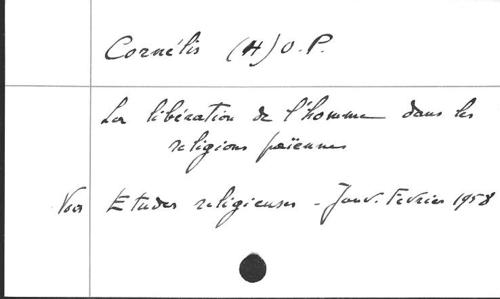 Cornélis (H) O.P.
La libération de l'homme dans les
religions païennes
Voir Etudes religieuses - Janv. Fevrier 1958